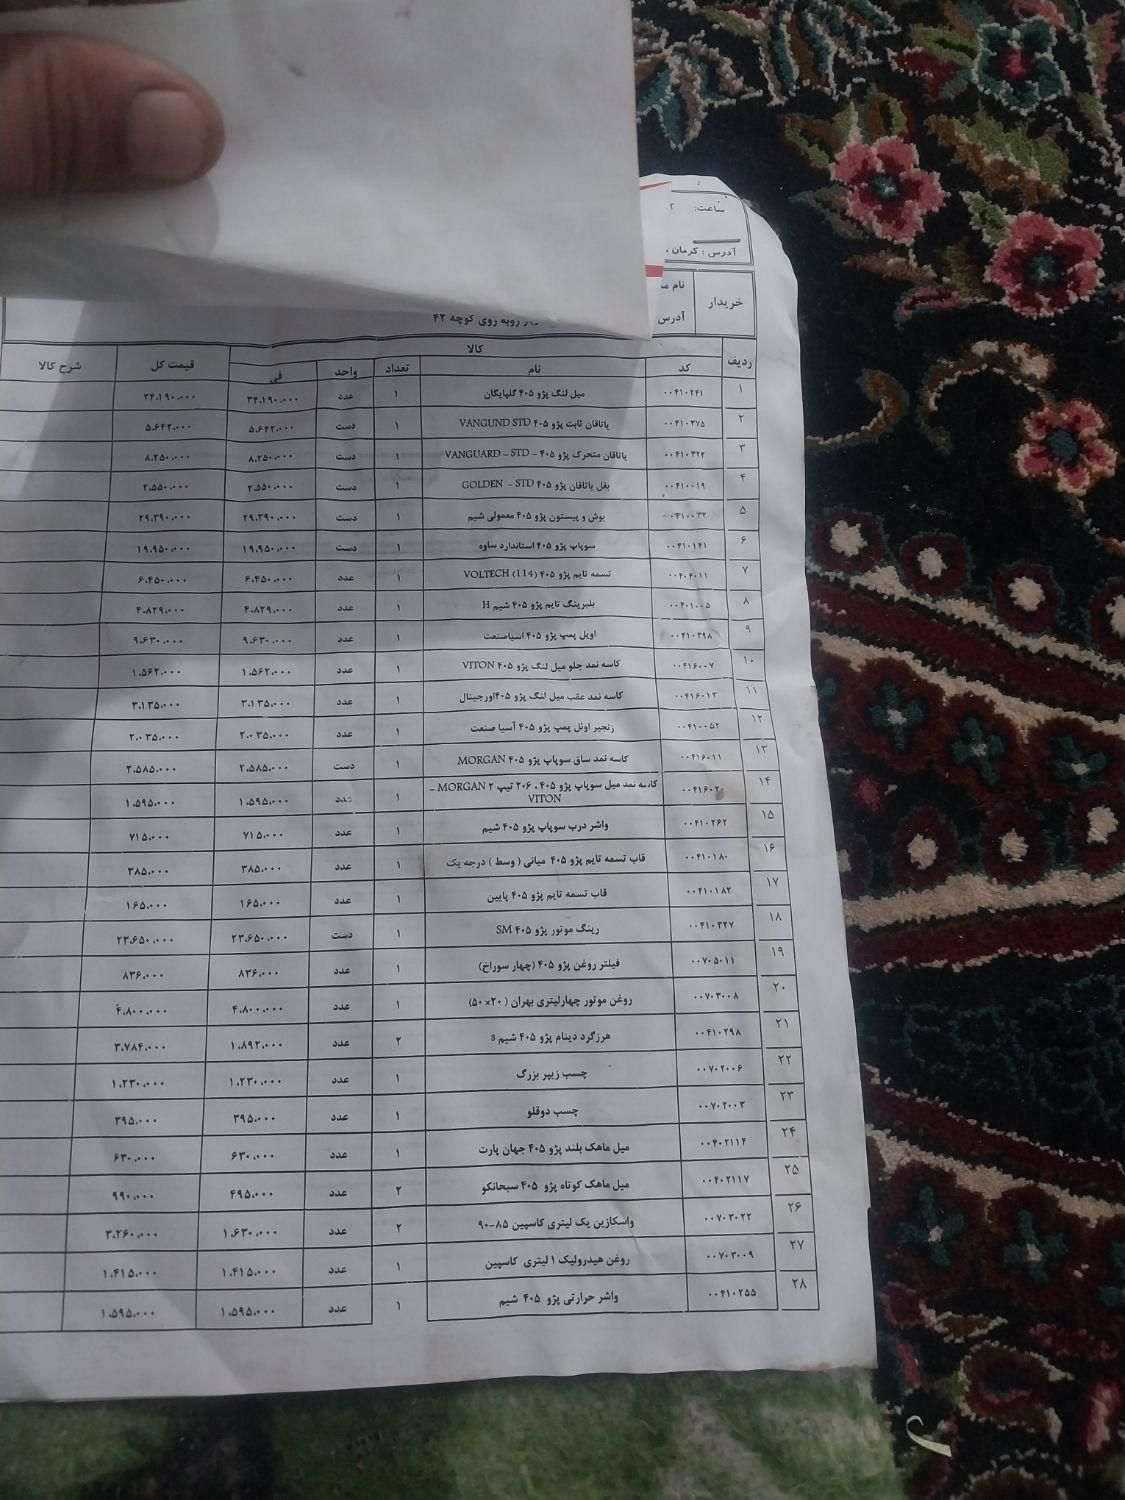 ساعت: ۲
آدرس : کرمان
خریدار
آدرس
روبه روی کوچه ۴۲
ردیف کالا قیمت کل شرح کالا
کد نام تعداد واحد فی
۱ ۰۰۴۱۰۲۴۱ میل لنگ پژو ۴۰۵ گلپایگان ۱ عدد ۳۴،۱۹۰،۰۰۰ ۳۴،۱۹۰،۰۰۰
۲ ۰۰۴۱۰۳۷۵ یاتاقان ثابت پژو ۴۰۵ VANGUND STD ۱ دست ۵،۶۴۲،۰۰۰ ۵،۶۴۲،۰۰۰
۳ ۰۰۴۱۰۳۲۲ یاتاقان متحرک پژو ۴۰۵ - VANGUARD - STD ۱ دست ۸،۲۵۰،۰۰۰ ۸،۲۵۰،۰۰۰
۴ ۰۰۴۱۰۰۱۹ بغل یاتاقان پژو ۴۰۵ GOLDEN - STD ۱ دست ۲،۵۵۰،۰۰۰ ۲،۵۵۰،۰۰۰
۵ ۰۰۴۱۰۰۳۲ بوش و پیستون پژو ۴۰۵ معمولی شیم ۱ دست ۲۹،۳۹۰،۰۰۰ ۲۹،۳۹۰،۰۰۰
۶ ۰۰۴۱۰۱۴۱ سوپاپ پژو ۴۰۵ استاندارد ساوه ۱ دست ۱۹،۹۵۰،۰۰۰ ۱۹،۹۵۰،۰۰۰
۷ ۰۰۴۰۴۰۱۱ تسمه تایم پژو ۴۰۵ VOLTECH (114) ۱ عدد ۶،۴۵۰،۰۰۰ ۶،۴۵۰،۰۰۰
۸ ۰۰۴۰۱۰۰۵ بلبرینگ تایم پژو ۴۰۵ شیم H ۱ عدد ۴،۸۲۹،۰۰۰ ۴،۸۲۹،۰۰۰
۹ ۰۰۴۱۰۳۹۸ اویل پمپ پژو ۴۰۵ اسیاصنعت ۱ عدد ۹،۶۳۰،۰۰۰ ۹،۶۳۰،۰۰۰
۱۰ ۰۰۴۱۶۰۰۷ کاسه نمد جلو میل لنگ پژو ۴۰۵ VITON ۱ عدد ۱،۵۶۲،۰۰۰ ۱،۵۶۲،۰۰۰
۱۱ ۰۰۴۱۶۰۱۳ کاسه نمد عقب میل لنگ پژو ۴۰۵اورجینال ۱ عدد ۳،۱۳۵،۰۰۰ ۳،۱۳۵،۰۰۰
۱۲ ۰۰۴۱۰۰۵۲ زنجیر اوئل پمپ پژو ۴۰۵ آسیا صنعت ۱ عدد ۲،۰۳۵،۰۰۰ ۲،۰۳۵،۰۰۰
۱۳ ۰۰۴۱۶۰۱۱ کاسه نمد ساق سوپاپ پژو ۴۰۵ MORGAN ۱ دست ۲،۵۸۵،۰۰۰ ۲،۵۸۵،۰۰۰
۱۴ کاسه نمد میل سوپاپ پژو ۴۰۵ ، ۲۰۶ تیپ ۲ MORGAN - ۱ عدد ۱،۵۹۵،۰۰۰ ۱،۵۹۵،۰۰۰
VITON
۱۵ ۰۰۴۱۰۲۶۲ واشر درب سوپاپ پژو ۴۰۵ شیم ۱ عدد ۷۱۵،۰۰۰ ۷۱۵،۰۰۰
۱۶ ۰۰۴۱۰۱۸۰ قاب تسمه تایم پژو ۴۰۵ میانی ( وسط ) درجه یک ۱ عدد ۳۸۵،۰۰۰ ۳۸۵،۰۰۰
۱۷ ۰۰۴۱۰۱۸۲ قاب تسمه تایم پژو ۴۰۵ پایین ۱ عدد ۱۶۵،۰۰۰ ۱۶۵،۰۰۰
۱۸ ۰۰۴۱۰۳۲۷ رینگ موتور پژو ۴۰۵ SM ۱ دست ۲۳،۶۵۰،۰۰۰ ۲۳،۶۵۰،۰۰۰
۱۹ ۰۰۷۰۵۰۱۱ فیلتر روغن پژو ۴۰۵ (چهار سوراخ) ۱ عدد ۸۳۶،۰۰۰ ۸۳۶،۰۰۰
۲۰ ۰۰۷۰۳۰۰۸ روغن موتور چهارلیتری بهران ( ۲۰×۵۰) ۱ عدد ۴،۸۰۰،۰۰۰ ۴،۸۰۰،۰۰۰
۲۱ ۰۰۴۱۰۲۹۸ هرزگرد دینام پژو ۴۰۵ شیم s ۲ عدد ۱،۸۹۲،۰۰۰ ۳،۷۸۴،۰۰۰
۲۲ ۰۰۷۰۲۰۰۶ چسب زیپر بزرگ ۱ عدد ۱،۲۳۰،۰۰۰ ۱،۲۳۰،۰۰۰
۲۳ ۰۰۷۰۲۰۰۳ چسب دوقلو ۱ عدد ۳۹۵،۰۰۰ ۳۹۵،۰۰۰
۲۴ ۰۰۴۰۲۱۱۴ میل ماهک بلند پژو ۴۰۵ جهان پارت ۱ عدد ۶۳۰،۰۰۰ ۶۳۰،۰۰۰
۲۵ ۰۰۴۰۲۱۱۷ میل ماهک کوتاه پژو ۴۰۵ سبحانکو ۲ عدد ۴۹۵،۰۰۰ ۹۹۰،۰۰۰
۲۶ ۰۰۷۰۳۰۲۲ واسکازین یک لیتری کاسپین ۸۵-۹۰ ۲ عدد ۱،۶۳۰،۰۰۰ ۳،۲۶۰،۰۰۰
۲۷ ۰۰۷۰۳۰۰۹ روغن هیدرولیک ۱ لیتری کاسپین ۱ عدد ۱،۴۱۵،۰۰۰ ۱،۴۱۵،۰۰۰
۲۸ ۰۰۴۱۰۲۵۵ واشر حرارتی پژو ۴۰۵ شیم ۱ عدد ۱،۵۹۵،۰۰۰ ۱،۵۹۵،۰۰۰